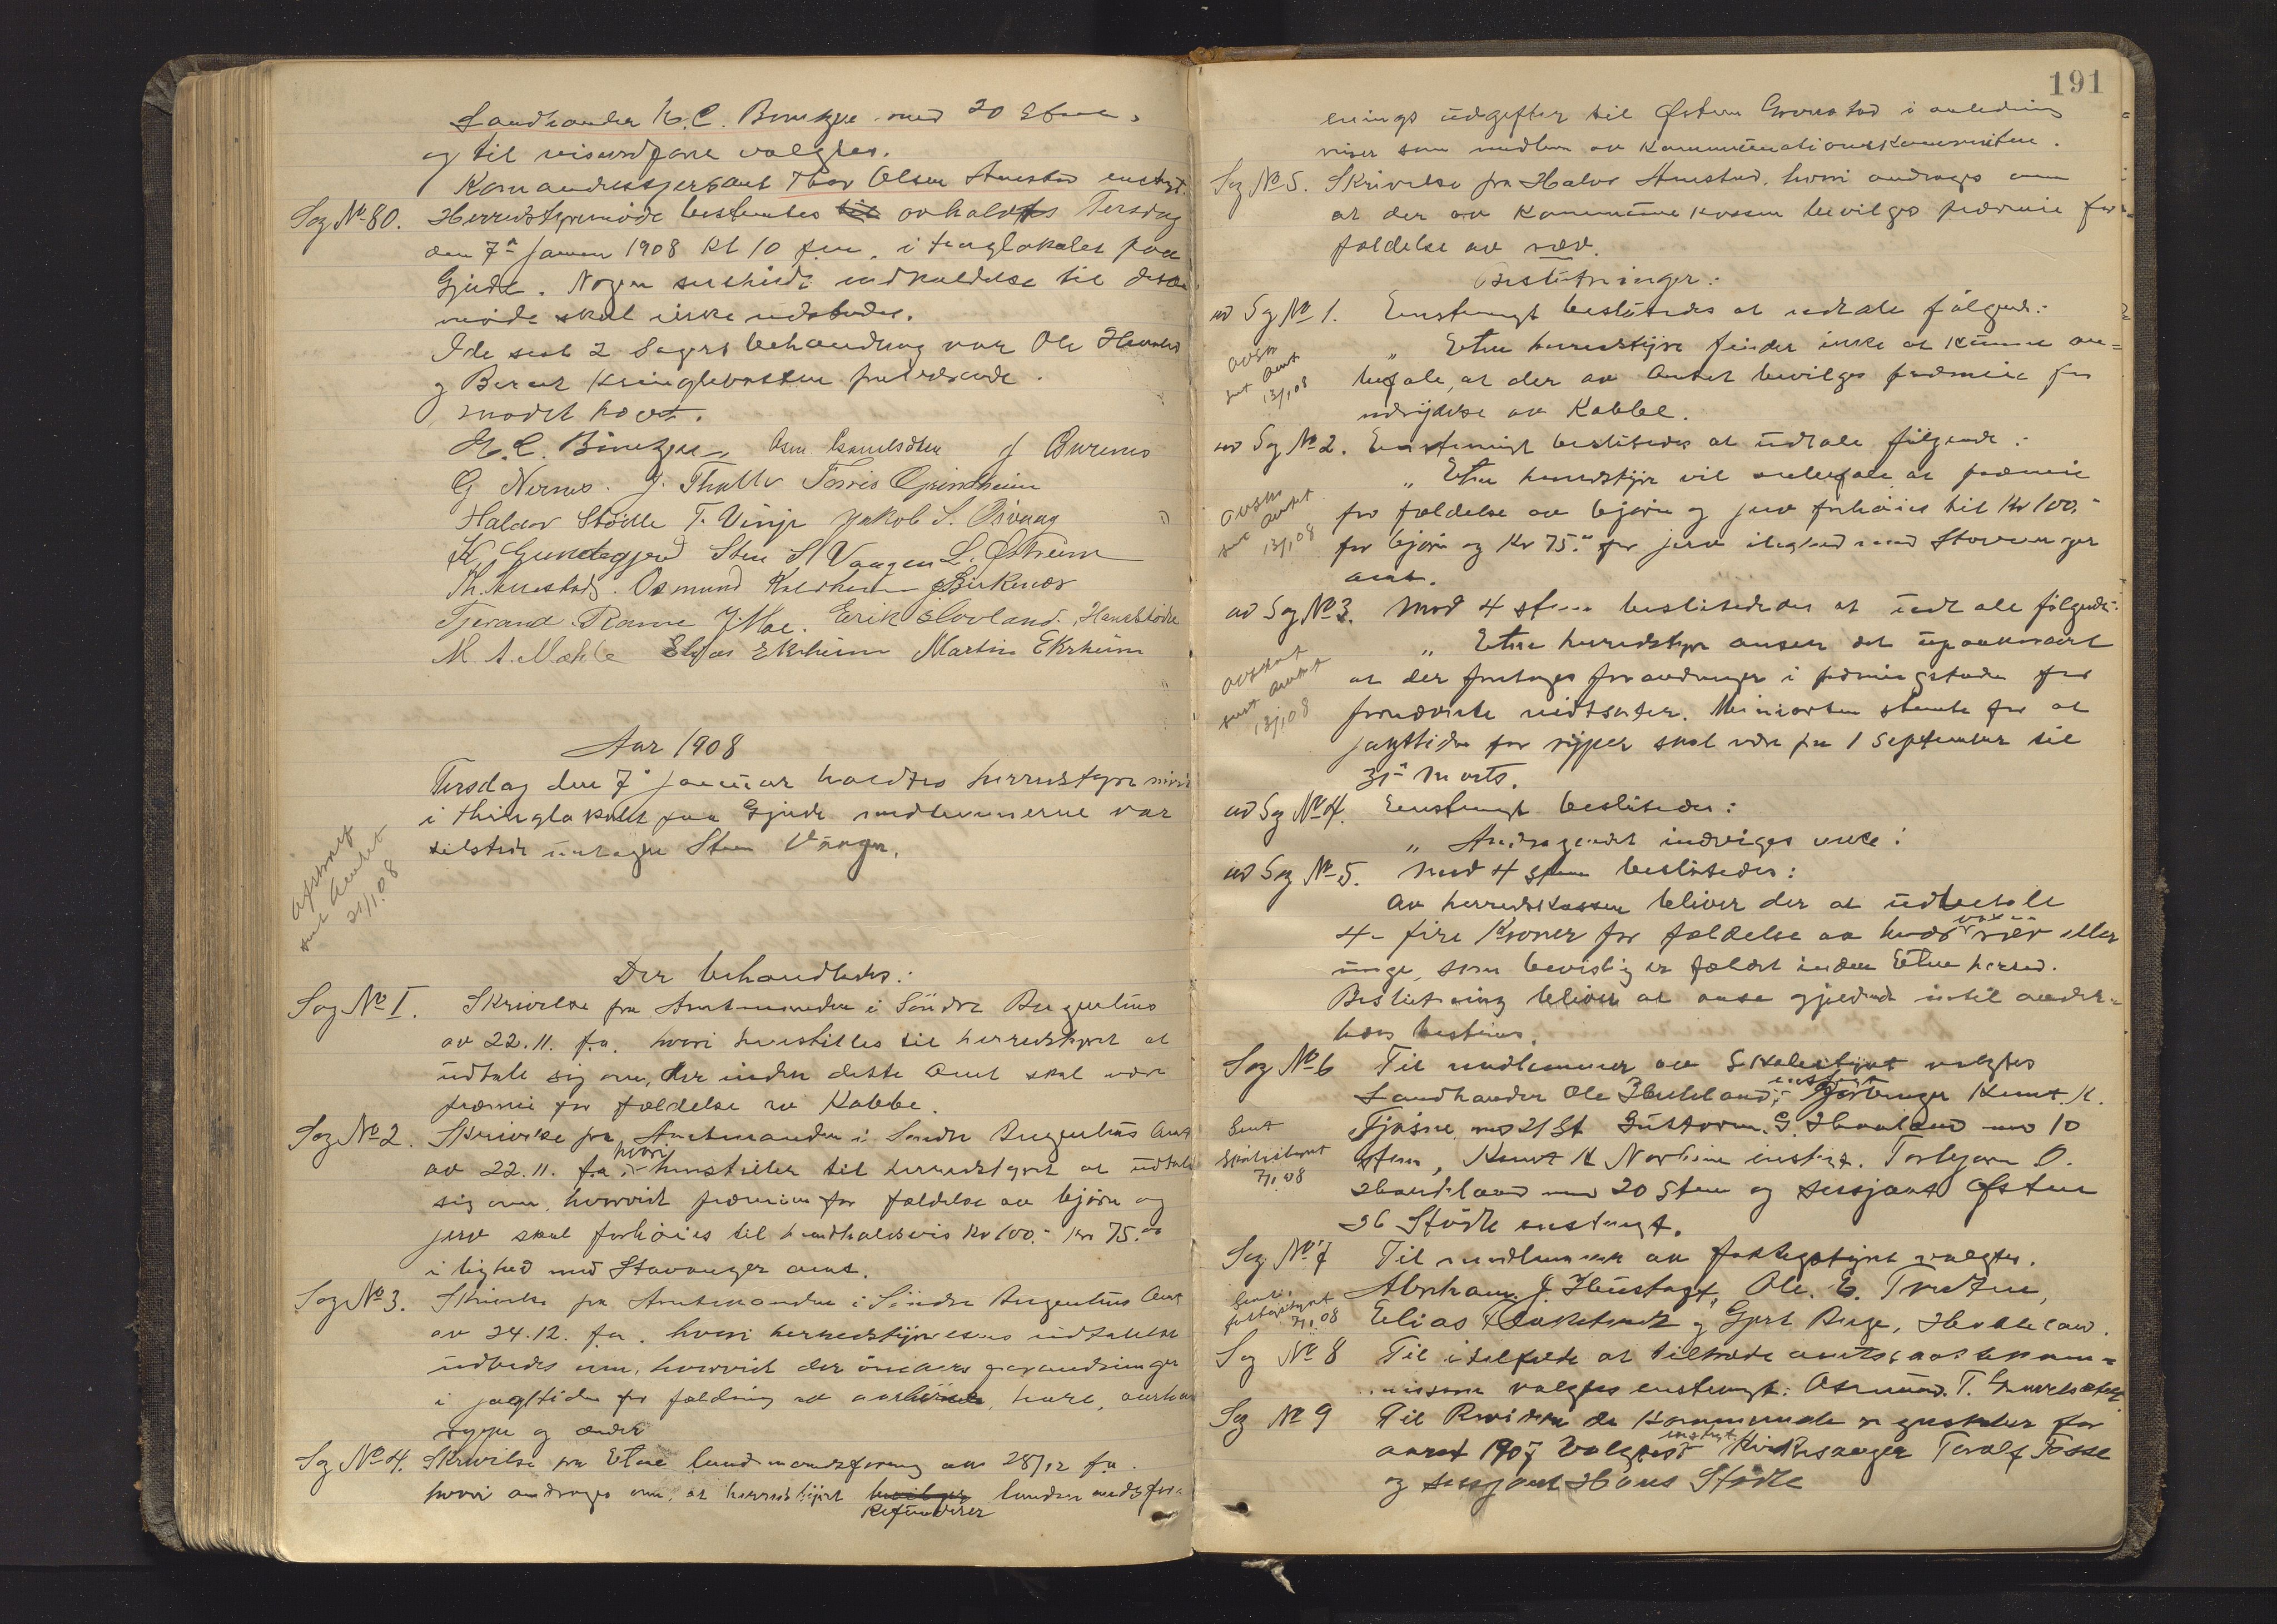 Landhandler H. C. Bintzer med 20 Stem.
og til viseordfører valgtes.
Komandersersjant Thor Olsen Anestad enstgt.
Sag № 80. Herredstyremöde bestemtes til avholdes Tirsdag
den 7de Januar 1908 kl 10 f.m. i tinglokalet paa
Gjerde. Nogen serskildt indkaldelse til dette
möde skal ikke udstedes.
I de sidst 2 Sagers behandling var Ole Haaland
og Bernt Kringlebotten fraværende.
mödet hævet.
H. C. Bintzer
G Nernes. J. Thollo Torris Grindheim
Haldor Stödle T. Vinje Jakob S. Osvaag
K. Gundegjerd Sten S Vaagen L. Østrem
Th. Anestad. Osmund Kaldheim J Birkenes
Tjerand Rame J Moe. Erik Hovland. Hans Stödle
M. A. Mæhle Elias Ekrheim Martin Ekrheim
Aar 1908
Tirsdag den 7de Januar holdtes herredstyre möde
i thinglokalet paa Gjerde medlemmerne var
tilstede undtagen Sten Vaagen.
Afskrevet
sent Amtet
21/1.08
Der behandledes:
Sag № 1. Skrivelse fra Amtmanden i Söndre Bergenhus
av 22.11. f.a. hvori henstilles til herredstyret at
udtale sig om, der inden dette Amt skal være
præmie for fældelse av Kobbe.
Sag № 2. Skrivelse fra Amtmanden i Söndre Bergenhus Amt
av 22.11. f.a. hvori henstilles til herredstyret at udtale
sig om, hvorvidt præmien for fældelse av björn og
jerv skal forhöies til hendholdsvis Kr 100.- Kr 75.00
i lighed med Stavanger amt.
Sag № 3. Skrivelse fra Amtmanden i Söndre Bergenhus Amt
av 24.12. f.a. hvori herredstyrelsens udtalelse
udbedes om, hvorvidt der önskes forandringer
i jagttiden for fældning av aarhöner, hare, aarhane
rype og ænder
Sag № 4. Skrivelse fra Etne landmandsforening av 28/12 f.a.
hvori andrages om, at herredstyret bevilger landmandsfor-
Refunderer
191
enings udgifter til Østen Gronstad i anledning
reiser som medlem av Kommunikationskommiteen.
Sag № 5. Skrivelse fra Halvor Anestad, hvori andrages om
at der av kommunekassen bevilges præmie for
fældelse av ræv.
Beslutninger:
ad Sag № 1. Enstemmigt besluttedes at udtale følgende:
„ Etne herredstyre finder ikke at kunne an-
befale, at der av Amtet bevilges præmie for
udryddelse av Kobbe.
Avskr
sent Amt
13/1 08
ad Sag № 2. Enstemmigt besluttedes at udtale følgende:
„ Etne herredstyre vil anbefale at præmie
for fældelse av björn og jerv forhöies til Kr 100.-
for björn og Kr 75.00 for jerv i lighed med Stavanger
amt.
Avskr
sent Amt
13/1 08
ad Sag № 3. Mod 4 stem besluttedes at udtale følgende:
„ Etne herredstyre anser det upaakrævet
at der foretages forandringer i fredningstiden for
fornævnte vildtsorter. Minioriteten stemte for at
jagttiden for ryper skal være fra 1 September til
31te Marts.
Avskrevet
sent Amtet
13/1 08
ad Sag № 4. Enstemmigt besluttedes:
„ Andragendet indvilges ikke!
ad Sag № 5. Mod 4 stem besluttedes:
Av herredskassen bliver der at udbetale
4- fire Kroner for fældelse av hver voxen ræv eller
unge, som bevislig er fældet inden Etne herred.
Beslutning bliver at anse gjeldende indtil ander-
ledes bestemes.
Sag № 6 Til medlemmer av Skolestyret valgtes
Landhandler Ole Haaland, enstemt Kunt K.
Fjösne, med 21 St Guttorm G. Haaland med 10
stem, Knut K Nordheim enstgt. Torbjørn O.
Haaland med 20 Stem og Sersjant Østen
Stödle enstemgt.
Sent
Skolestyret
7/1 08
Sag № 7 Til medlemmer av fattigstyret valgtes.
Abraham J. Hustoft, Ole E. Tvedten,
Elias og Gjert Berge, Haaland.
Sent
fattigstyret
7/1 08
Sag № 8 Til i tilfælde at tiltræde amtskom-
missionen valgtes enstemgt: Osmund T.
Sag № 9 Til Revisorer de kommunale regnskaber for
aaret 1907 valgtes enstgt Kirkesanger Torolf Fosse
og Sersjant Hans Stödle